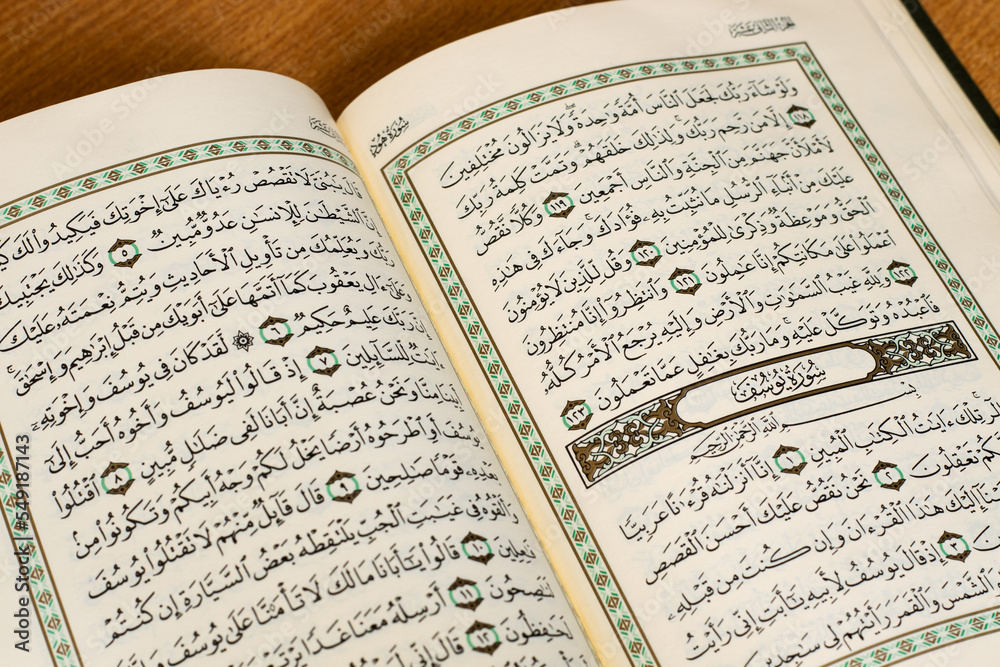 الجزء الثاني عشر
سورة هود
ولو شاء ربك لجعل الناس أمة واحدة ولا يزالون مختلفين
١١٨ إلا من رحم ربك ولذلك خلقهم وتمت كلمة ربك
لأملأن جهنم من الجنة والناس أجمعين ١١٩ وكلا نقص
عليك من أنباء الرسل ما نثبت به فؤادك وجاءك في هذه
الحق وموعظة وذكرى للمؤمنين ١٢٠ وقل للذين لا يؤمنون
اعملوا على مكانتكم إنا عملون ١٢١ وانتظروا إنا منتظرون
١٢٢ ولله غيب السموت والأرض وإليه يرجع الأمر كله
فاعبده وتوكل عليه وما ربك بغفل عما تعملون ١٢٣
سورة يوسف
بسم الله الرحمن الرحيم
تلك ءايت الكتب المبين ١ إنا أنزلنه قرءنا عربيا
تعقلون ٢ نحن نقص عليك أحسن القصص
إليك هذا القرءان وإن كنت من قبله
٣ إذ قال يوسف لأبيه يأبت إني رأيت
والشمس والقمر رأيتهم لي سجدين
قال يبني لا تقصص رءياك على إخوتك فيكيدوا لك
إن الشيطن للإنسن عدو مبين ٥ وكذلك يجتبيك
ربك ويعلمك من تأويل الأحاديث ويتم نعمته عليك
وعلى ءال يعقوب كما أتمها على أبويك من قبل إبرهيم وإسحق
إن ربك عليم حكيم ٦ ۞ لقد كان في يوسف وإخوته
ءايت للسائلين ٧ إذ قالوا ليوسف وأخوه أحب إلى
أبينا منا ونحن عصبة إن أبانا لفي ضلل مبين ٨ اقتلوا
يوسف أو اطرحوه أرضا يخل لكم وجه أبيكم وتكونوا من
بعده قوما صلحين ٩ قال قائل منهم لا تقتلوا يوسف
وألقوه في غيبت الجب يلتقطه بعض السيارة إن كنتم
فعلين ١٠ قالوا يأبانا ما لك لا تأمنا على يوسف
لنصحون ١١ أرسله معنا غدا
لحفظون ١٢ قال إني
Adobe Stock
Adobe Stock | #549187143